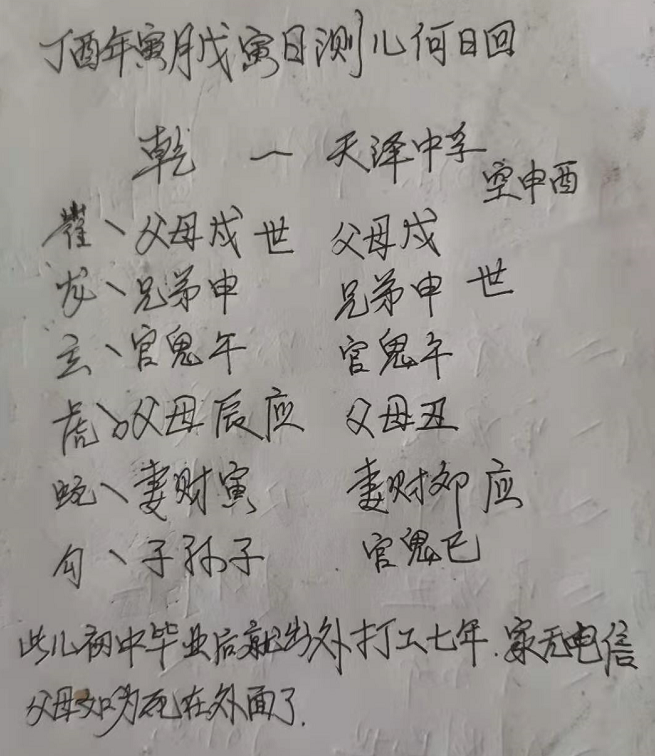 丁酉年寅月戊寅日测儿何日回
乾 一 天泽中孚
空申酉
雀、父母戌 世 父母戌
龙、兄弟申 兄弟申 世
玄、官鬼午 官鬼午
虎 父母辰 应 父母丑
蛇、妻财寅 妻财卯 应
勾、子孙子 官鬼巳
此儿初中毕业后就出外打工七年.家无电信
父母以为死在外面了.